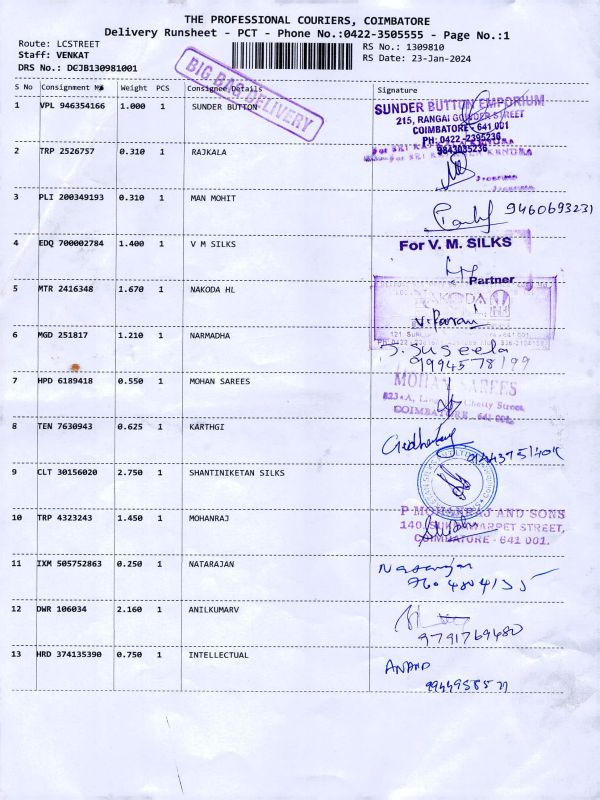 THE PROFESSIONAL COURIERS, COIMBATORE
Delivery Runsheet - PCT - Phone No.:0422-3505555 - Page No.:1
Route: LCSTREET
RS No.: 1309810
Staff: VENKAT
RS Date: 23-Jan-2024
DRS No.: DCJB130981001
BIG BAG DELIVERY
S No Consignment No Weight PCS Consignee Details Signature
1 VPL 946354166 1.000 1 SUNDER BUTTON
SUNDER BUTTON EMPORIUM
215, RANGAI GOWDER STREET
COIMBATORE - 641 001
PH: 0422 - 2395236
9843035236
2 TRP 2526757 0.310 1 RAJKALA
3 PLI 200349193 0.310 1 MAN MOHIT
9460693231
4 EDQ 700002784 1.400 1 V M SILKS
For V. M. SILKS
Partner
5 MTR 2416348 1.670 1 NAKODA HL
NAKODA
6 MGD 251817 1.210 1 NARMADHA
S. Suseela
7 HPD 6189418 0.550 1 MOHAN SAREES
MOHAN SAREES
COIMBATORE - 641 001.
8 TEN 7630943 0.625 1 KARTHGI
9 CLT 30156020 2.750 1 SHANTINIKETAN SILKS
10 TRP 4323243 1.450 1 MOHANRAJ
P MOHANRAJ AND SONS
140, SUKRAWARPET STREET,
COIMBATORE - 641 001.
11 IXM 505752863 0.250 1 NATARAJAN
12 DWR 106034 2.160 1 ANILKUMARV
9791769480
13 HRD 374135390 0.750 1 INTELLECTUAL
ANAND